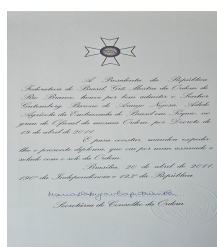 A Presidenta da República
Federativa do Brasil, Grã-Mestra da Ordem de
Rio Branco, houve por bem admitir o Senhor
Gutemberg Barone de Araujo Nojosa, Adido
Agrícola da Embaixada do Brasil em Tóquio, no
grau de Oficial da mesma Ordem, por Decreto de
19 de abril de 2011.
E para constar mandou expedir-
lhe o presente diploma, que vai por mim assinado e
selado com o selo da Ordem.
Brasília, 20 de abril de 2011,
190º da Independência e 123º da República.
Secretária do Conselho da Ordem